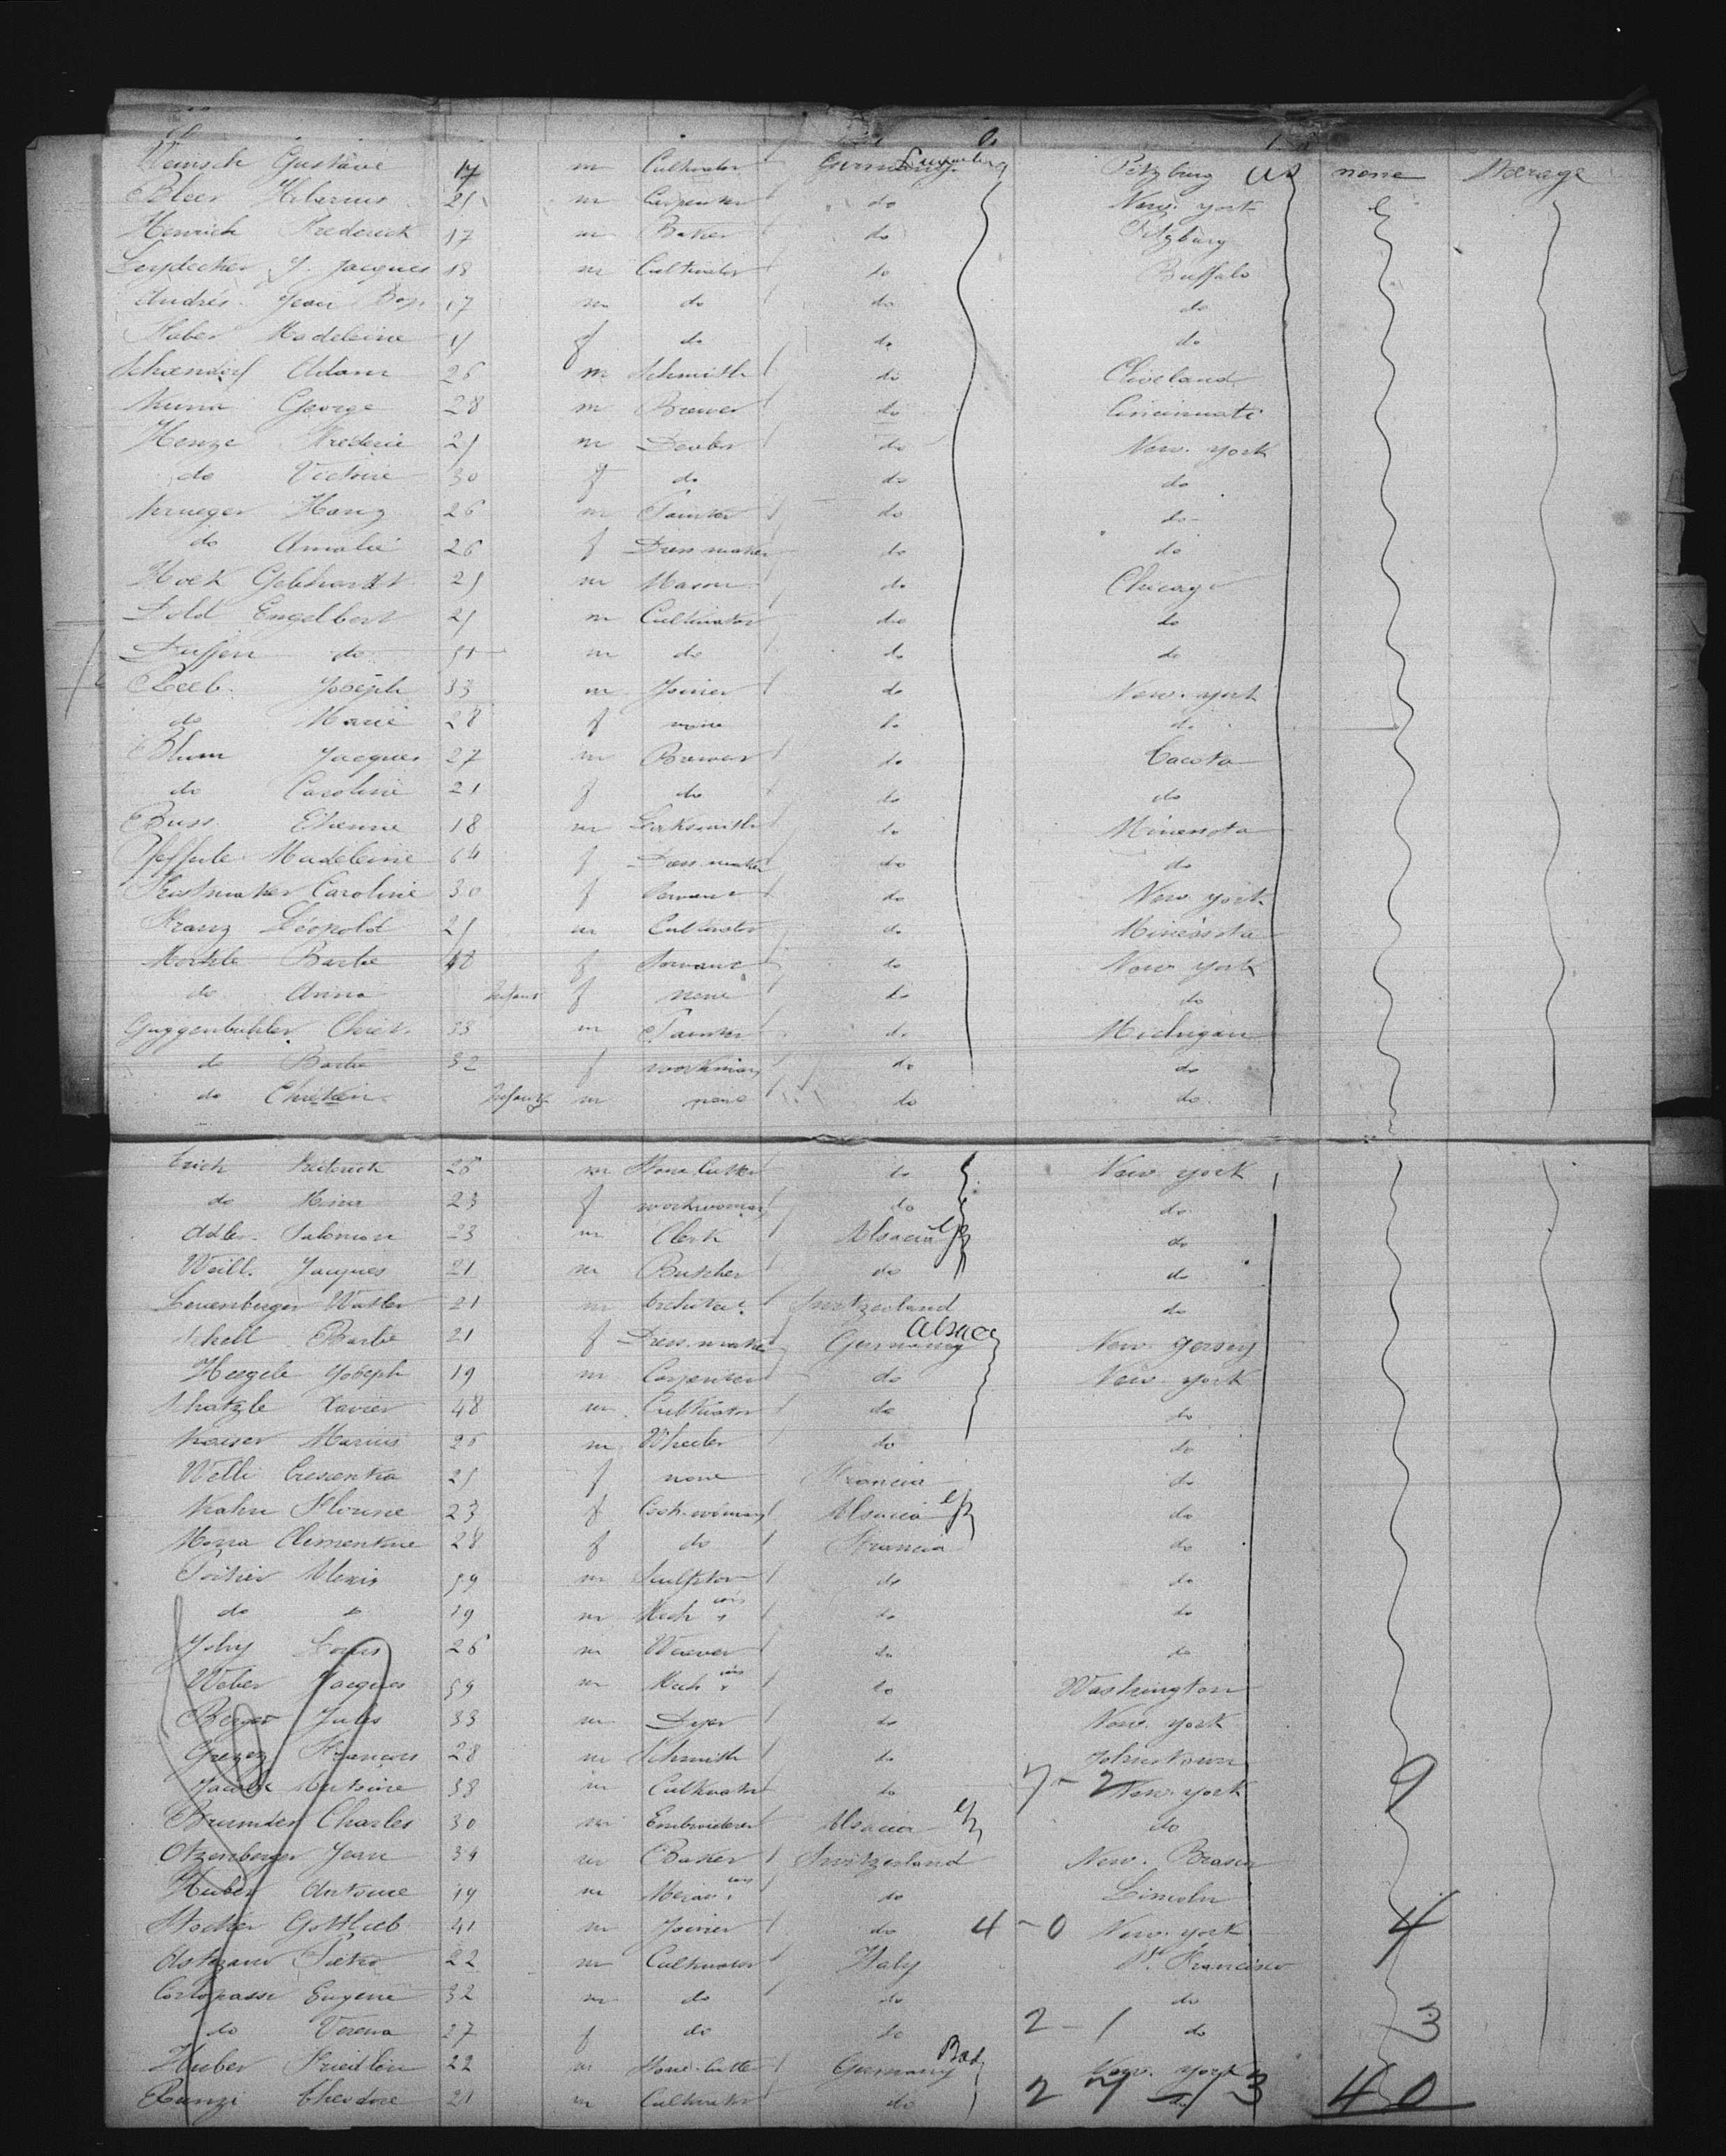 Weinsch Gustave 17 m Cultivator Germany Luxemburg Pitzburg US none Steerage
Bleer 21 m Carpenter do New-york
Henrich Frederick 17 m Baker do Pitzburg
Leydecker J. Jacques 18 m Cultivator do Buffalo
Andrés Jean Bap. 17 m do do do
Huber Madeleine f do do do
Schoendorf Adam 26 m Schmith do Cleveland
Kuna George 28 m Brewer do Cincinnati
Henze Frederic 21 m do New-york
do Victoire 30 f do do do
Krueger Hanz 26 m Painter do do
do Amalie 26 f Dress maker do do
Hock Gebhardt 21 m Mason do Chicago
Dold Engelbert 21 m Cultivator do do
Duffen do 51 m do do do
Reeb Joseph 33 m Joiner do New-york
do Marie 28 f none do do
Blum Jacques 27 m Brewer do Dacota
do Caroline 21 f do do do
Buss Etienne 18 m Locksmith do Minensota
Madeleine 64 f Dress maker do do
Caroline 30 f Servant do New-york
Franz Léopold 21 m Cultivator do Minessota
Morkle Barbe 48 f Servant do New-york
do Anna Infant f none do do
Guggenbuhler Chret. 33 m Painter do Michigan
do Barbe 32 f workman do do
do Chrétien Infant m none do do
Erich Frederick 28 m Stone Cutter do New-york
do Mina 23 f workwoman do do
Adler Salomon 23 m Clerk Alsacia do
Weill Jacques 21 m Butcher do do
Leuenberger Walter 21 m Architect Switzerland do
Schell Barbe 21 f Dress maker Germany Alsace New-Jersey
Heegele Joseph 19 m Carpenter do New-york
Schatzle Xavier 48 m Cultivator do do
Kaiser Marius 26 m Wheeler do do
Welti Crescentia 21 f none Francia do
Kahn Florine 23 f Cook-woman Alsacia do
Mona Clementine 28 f do Francia do
Poirier Alexis 59 m Sculptor do do
do do 19 m do do
Joly Louis 26 m Weaver do do
Weber Jacques 59 m do Washington
Berger Jules 33 m Dyer do New-york
Grezez Francois 28 m Schmith do Johnstown
Antoine 38 m Cultivator do 7-2 New-york 9
Brumder Charles 30 m Embroiderer Alsacia do
Otzenberger Jean 34 m Baker Switzerland New-
Huber Antoine 19 m do Lincoln
Stocker Gottlieb 41 m Joiner do 4-0 New-york 4
Pietro 22 m Cultivator Italy St. Francisco
Cortopassi Eugene 32 m do do do
do Verena 27 f do do 2-1 do 3
Huber Friedlin 22 m Stone-Cutter Germany Bad New-york
Runzi Theodore 21 m Cultivator do 27-13 do 40